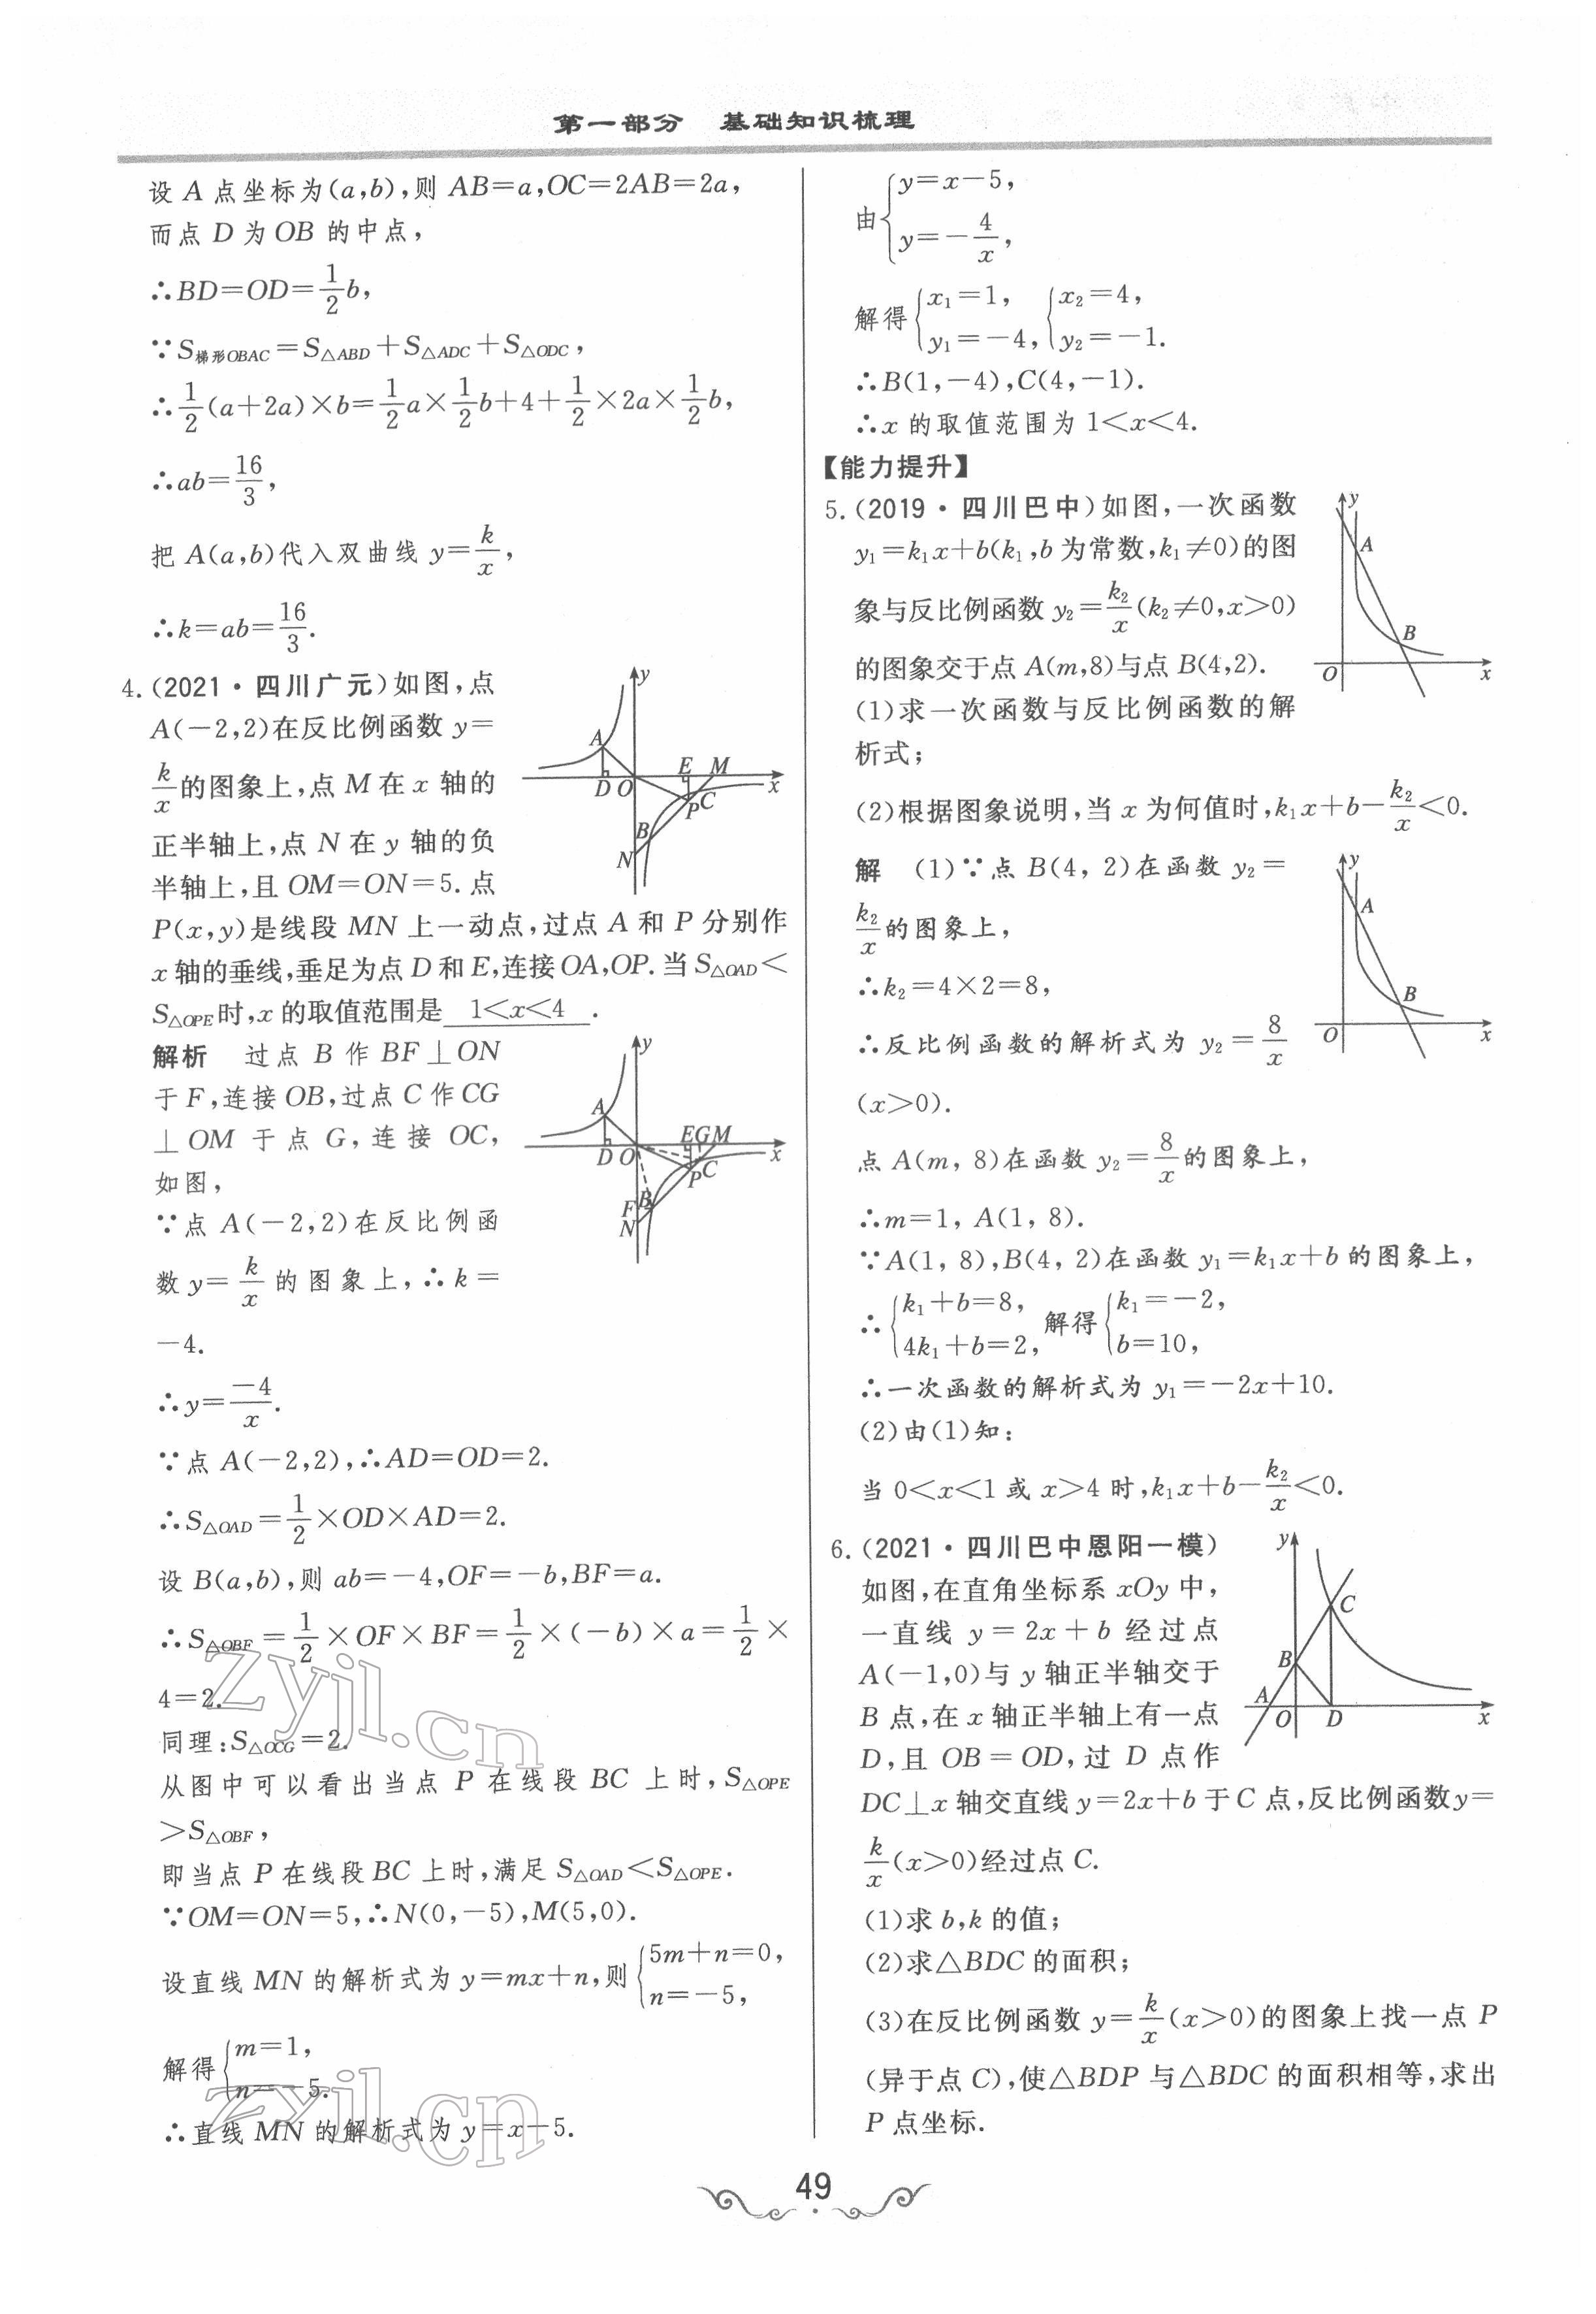 第一部分　基础知识梳理
设 A 点坐标为(a,b),则 AB=a,OC=2AB=2a,
而点 D 为OB 的中点,
∴BD=OD=1/2b,
∵S梯形OBAC=S△ABD+S△ADC+S△ODC,
∴1/2(a+2a)×b=1/2a×1/2b+4+1/2×2a×1/2b,
∴ab=16/3,
把 A(a,b)代入双曲线 y=k/x,
∴k=ab=16/3.
4.(2021·四川广元)如图,点
A(-2,2)在反比例函数 y=
k/x的图象上,点 M 在 x 轴的
正半轴上,点 N 在 y 轴的负
半轴上,且 OM=ON=5.点
P(x,y)是线段 MN 上一动点,过点 A 和 P 分别作
x 轴的垂线,垂足为点 D 和 E,连接OA,OP.当 S△OAD<
S△OPE时,x 的取值范围是 1<x<4 .
y
A
E M
D O x
P C
B
N
解析　过点 B 作 BF⊥ON
于 F,连接 OB,过点 C 作 CG
⊥OM 于点 G,连接 OC,
如图,
∵点 A(-2,2)在反比例函
数 y=k/x 的图象上,∴k=
-4.
y
A
EGM
D O x
P C
F B
N
∴y=-4/x.
∵点 A(-2,2),∴AD=OD=2.
∴S△OAD=1/2×OD×AD=2.
设 B(a,b),则 ab=-4,OF=-b,BF=a.
∴S△OBF=1/2×OF×BF=1/2×(-b)×a=1/2×
4=2.
同理:S△OCG=2.
从图中可以看出当点 P 在线段 BC 上时,S△OPE
>S△OBF,
即当点 P 在线段 BC 上时,满足 S△OAD<S△OPE.
∵OM=ON=5,∴N(0,-5),M(5,0).
设直线 MN 的解析式为 y=mx+n,则{5m+n=0,
n=-5,
解得{m=1,
n=-5.
∴直线 MN 的解析式为 y=x-5.
zyjl.cn
zyjl.cn
由{y=x-5,
y=-4/x,
解得{x1=1, {x2=4,
y1=-4, y2=-1.
∴B(1,-4),C(4,-1).
∴x 的取值范围为 1<x<4.
【能力提升】
5.(2019·四川巴中)如图,一次函数
y1=k1x+b(k1,b 为常数,k1≠0)的图
象与反比例函数 y2=k2/x(k2≠0,x>0)
的图象交于点 A(m,8)与点 B(4,2).
(1)求一次函数与反比例函数的解
析式;
y
A
B
O x
(2)根据图象说明,当 x 为何值时,k1x+b-k2/x<0.
解　(1)∵点 B(4, 2)在函数 y2=
k2/x的图象上,
∴k2=4×2=8,
∴反比例函数的解析式为 y2=8/x
(x>0).
y
A
B
O x
点 A(m, 8)在函数 y2=8/x的图象上,
∴m=1, A(1, 8).
∵A(1, 8),B(4, 2)在函数 y1=k1x+b 的图象上,
∴{k1+b=8, 解得{k1=-2,
4k1+b=2, b=10,
∴一次函数的解析式为 y1=-2x+10.
(2)由(1)知:
当 0<x<1 或 x>4 时,k1x+b-k2/x<0.
6.(2021·四川巴中恩阳一模)
如图,在直角坐标系 xOy 中,
一直线 y=2x+b 经过点
A(-1,0)与 y 轴正半轴交于
B 点,在 x 轴正半轴上有一点
D,且 OB=OD,过 D 点作
DC⊥x 轴交直线 y=2x+b 于 C 点,反比例函数y=
k/x(x>0)经过点 C.
y
C
B
A O D x
(1)求 b,k 的值;
(2)求△BDC 的面积;
(3)在反比例函数 y=k/x(x>0)的图象上找一点 P
(异于点 C),使△BDP 与△BDC 的面积相等,求出
P 点坐标.
49